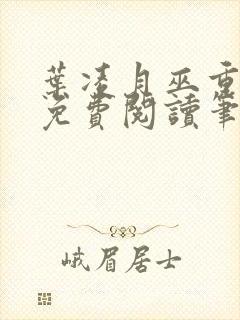 葉凌月巫重
免費閱讀筆
峨眉居士